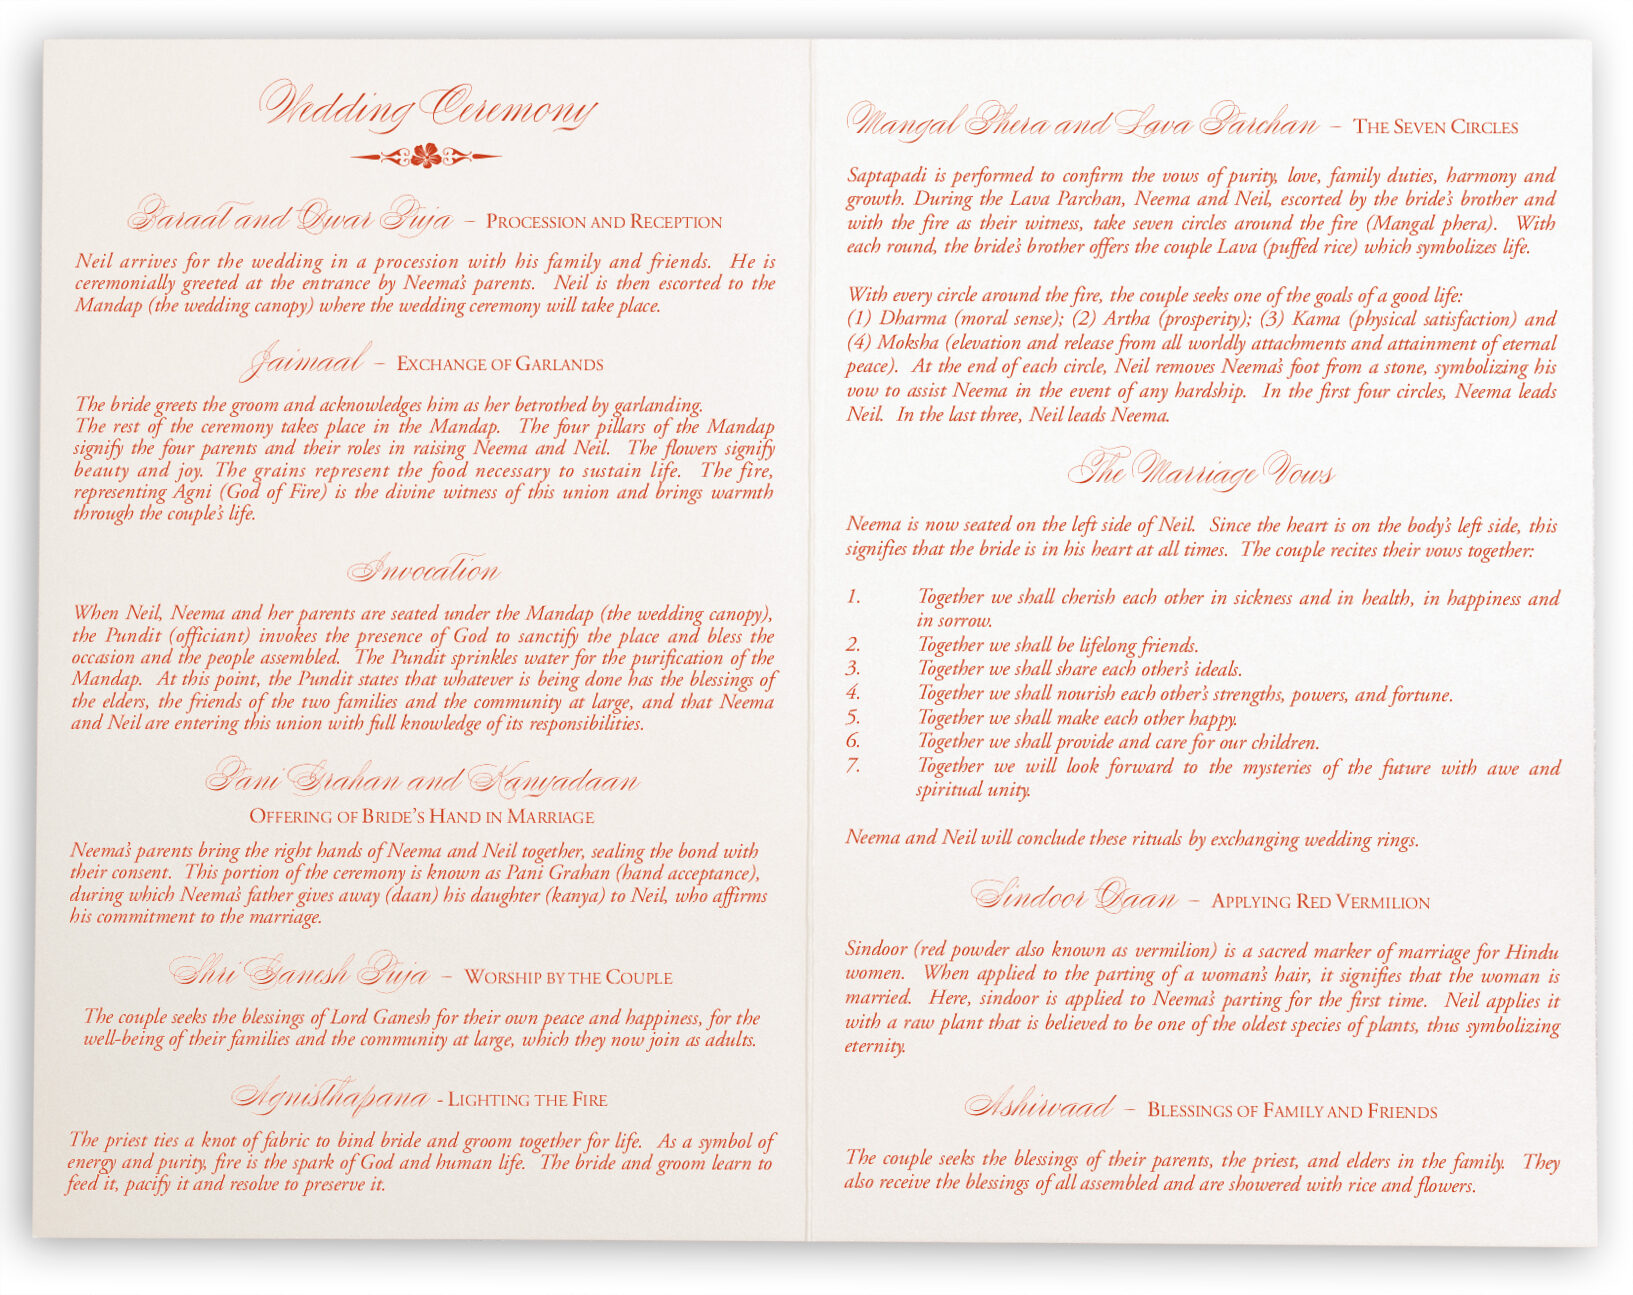 Wedding Ceremony
Baraat and Dwar Puja – PROCESSION AND RECEPTION
Neil arrives for the wedding in a procession with his family and friends. He is
ceremonially greeted at the entrance by Neema's parents. Neil is then escorted to the
Mandap (the wedding canopy) where the wedding ceremony will take place.
Jaimaal – EXCHANGE OF GARLANDS
The bride greets the groom and acknowledges him as her betrothed by garlanding.
The rest of the ceremony takes place in the Mandap. The four pillars of the Mandap
signify the four parents and their roles in raising Neema and Neil. The flowers signify
beauty and joy. The grains represent the food necessary to sustain life. The fire,
representing Agni (God of Fire) is the divine witness of this union and brings warmth
through the couple's life.
Invocation
When Neil, Neema and her parents are seated under the Mandap (the wedding canopy),
the Pundit (officiant) invokes the presence of God to sanctify the place and bless the
occasion and the people assembled. The Pundit sprinkles water for the purification of the
Mandap. At this point, the Pundit states that whatever is being done has the blessings of
the elders, the friends of the two families and the community at large, and that Neema
and Neil are entering this union with full knowledge of its responsibilities.
Pani Grahan and Kanyadaan
OFFERING OF BRIDE'S HAND IN MARRIAGE
Neema's parents bring the right hands of Neema and Neil together, sealing the bond with
their consent. This portion of the ceremony is known as Pani Grahan (hand acceptance),
during which Neema's father gives away (daan) his daughter (kanya) to Neil, who affirms
his commitment to the marriage.
Shri Ganesh Puja – WORSHIP BY THE COUPLE
The couple seeks the blessings of Lord Ganesh for their own peace and happiness, for the
well-being of their families and the community at large, which they now join as adults.
Agnisthapana - LIGHTING THE FIRE
The priest ties a knot of fabric to bind bride and groom together for life. As a symbol of
energy and purity, fire is the spark of God and human life. The bride and groom learn to
feed it, pacify it and resolve to preserve it.
Mangal Phera and Lava Parchan – THE SEVEN CIRCLES
Saptapadi is performed to confirm the vows of purity, love, family duties, harmony and
growth. During the Lava Parchan, Neema and Neil, escorted by the bride's brother and
with the fire as their witness, take seven circles around the fire (Mangal phera). With
each round, the bride's brother offers the couple Lava (puffed rice) which symbolizes life.
With every circle around the fire, the couple seeks one of the goals of a good life:
(1) Dharma (moral sense); (2) Artha (prosperity); (3) Kama (physical satisfaction) and
(4) Moksha (elevation and release from all worldly attachments and attainment of eternal
peace). At the end of each circle, Neil removes Neema's foot from a stone, symbolizing his
vow to assist Neema in the event of any hardship. In the first four circles, Neema leads
Neil. In the last three, Neil leads Neema.
The Marriage Vows
Neema is now seated on the left side of Neil. Since the heart is on the body's left side, this
signifies that the bride is in his heart at all times. The couple recites their vows together:
1. Together we shall cherish each other in sickness and in health, in happiness and
in sorrow.
2. Together we shall be lifelong friends.
3. Together we shall share each other's ideals.
4. Together we shall nourish each other's strengths, powers, and fortune.
5. Together we shall make each other happy.
6. Together we shall provide and care for our children.
7. Together we will look forward to the mysteries of the future with awe and
spiritual unity.
Neema and Neil will conclude these rituals by exchanging wedding rings.
Sindoor Daan – APPLYING RED VERMILION
Sindoor (red powder also known as vermilion) is a sacred marker of marriage for Hindu
women. When applied to the parting of a woman's hair, it signifies that the woman is
married. Here, sindoor is applied to Neema's parting for the first time. Neil applies it
with a raw plant that is believed to be one of the oldest species of plants, thus symbolizing
eternity.
Ashirvaad – BLESSINGS OF FAMILY AND FRIENDS
The couple seeks the blessings of their parents, the priest, and elders in the family. They
also receive the blessings of all assembled and are showered with rice and flowers.